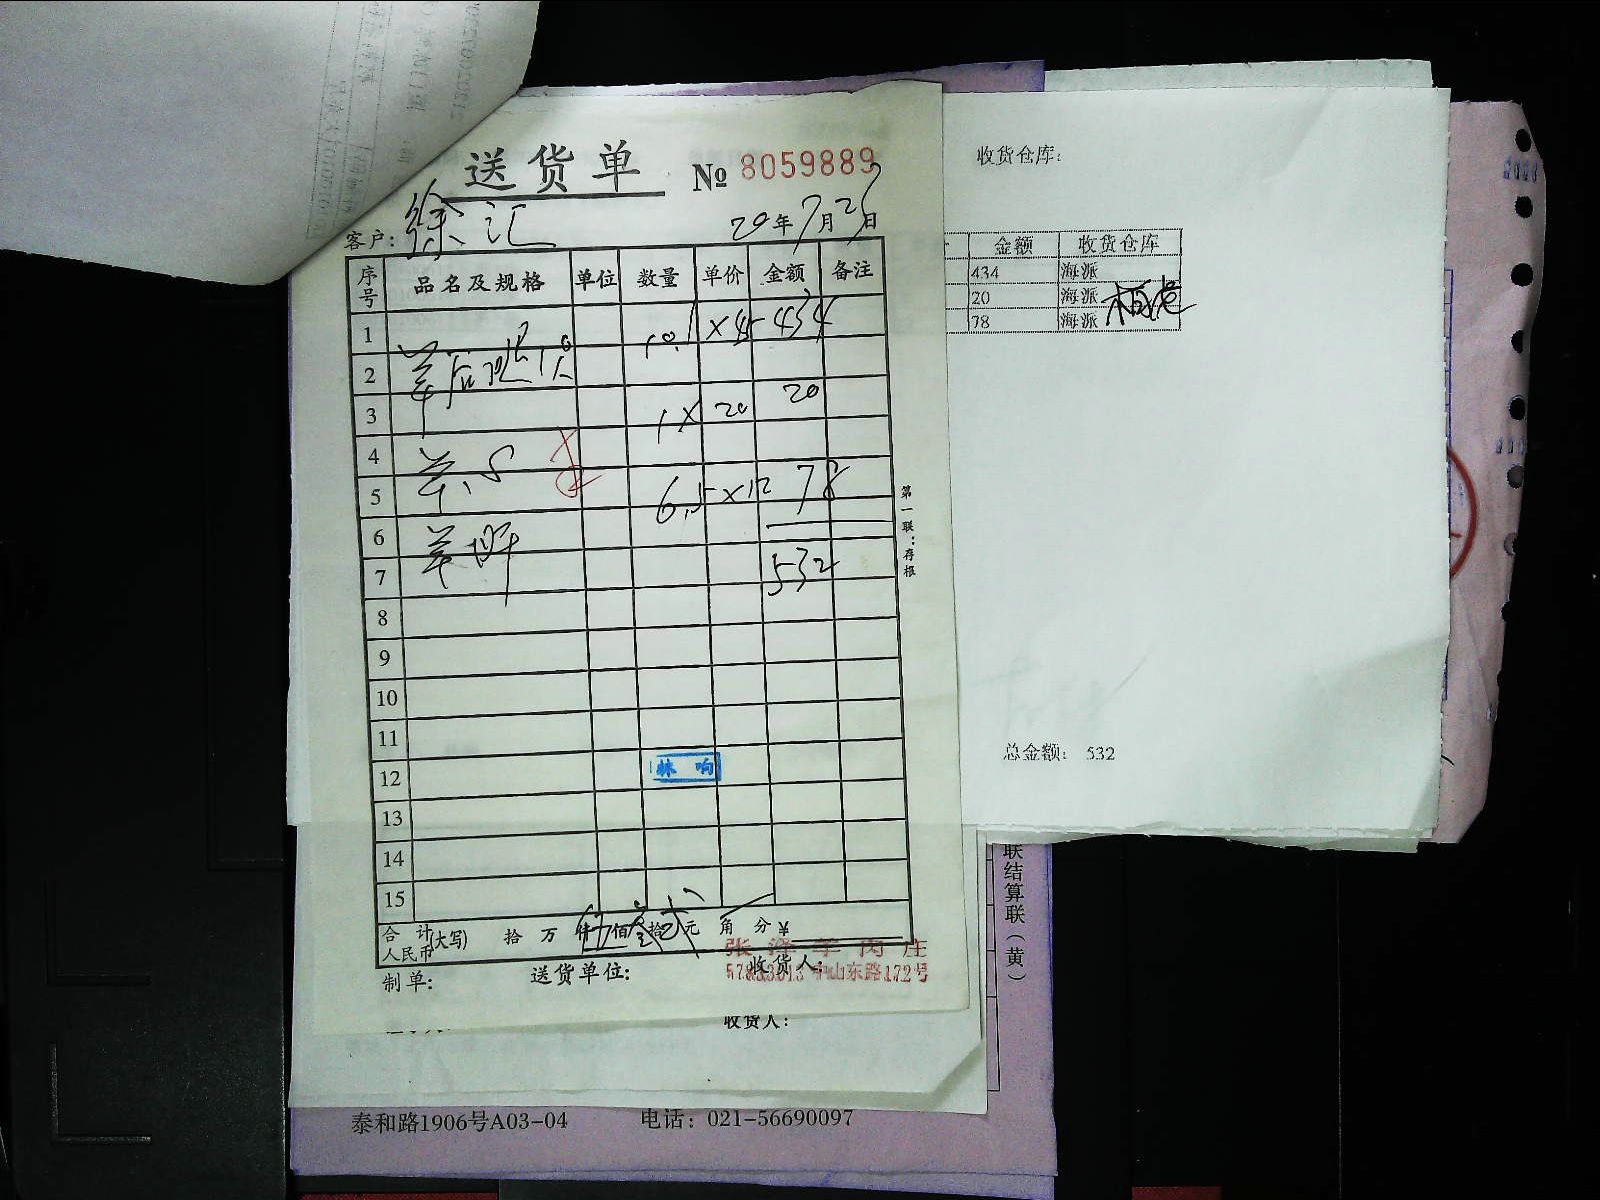 送货单 № 8059889
收货仓库:
客户: 徐汇 20年7月2日
序号 品名及规格 单位 数量 单价 金额 备注
金额 收货仓库
434 海派
20 海派
78 海派
1 ×45 434
2 羊后腿
3 1× 20 20
4 羊心
5 6.5 ×12 78
6 羊肝
7 532
8
9
10
11
12
13
14
15
第一联:存根
总金额: 532
合计人民币(大写) 拾 万 仟 伍佰叁拾贰元 角 分 ¥
张泽羊肉庄
中山东路172号
制单: 送货单位: 收货人:
收货人:
联结算联(黄)
泰和路1906号A03-04 电话: 021-56690097